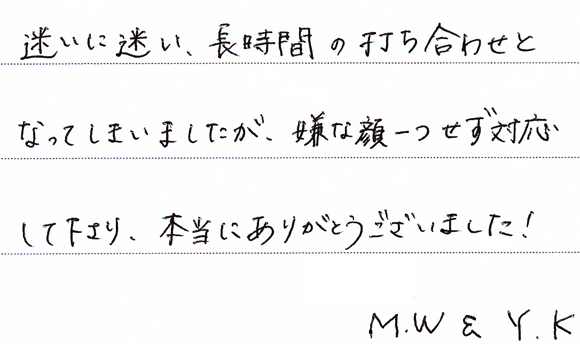 迷いに迷い、長時間の打ち合わせと
なってしまいましたが、嫌な顔一つせず対応
して下さり、本当にありがとうございました！
M.W & Y.K